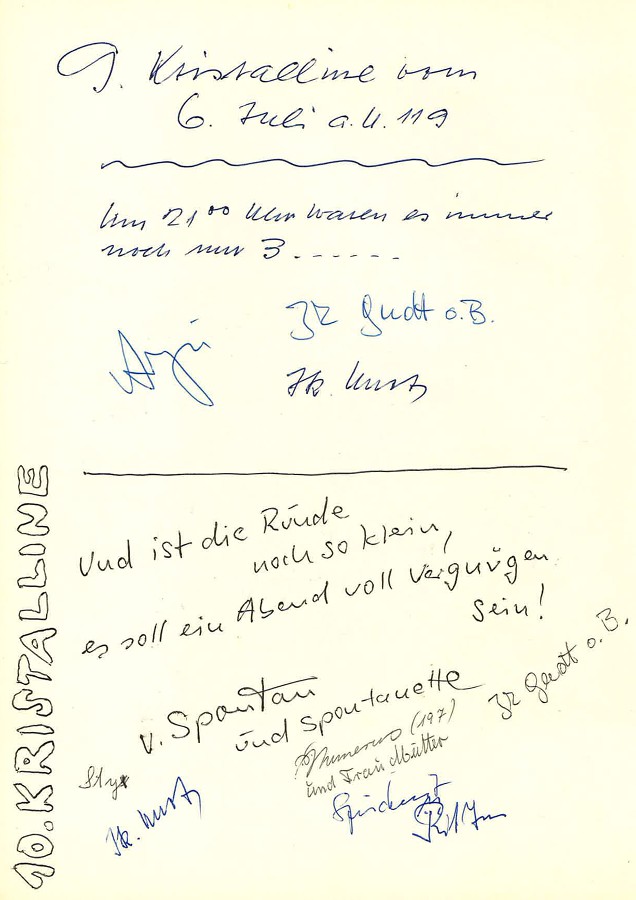 9. Kristalline vom
6. Juli a.U. 119
Um 21⁰⁰ Uhr waren es immer
noch nur 3 . - - - - - -
Jk Gudt o.B.
Kurtz
10. KRISTALLINE
Und ist die Runde
noch so klein,
es soll ein Abend voll Vergnügen
sein!
v. Spontan
und Spontanette
Jk Gudt o.B.
Numerus (197)
und Traudlmütter
Styx
Kurtz